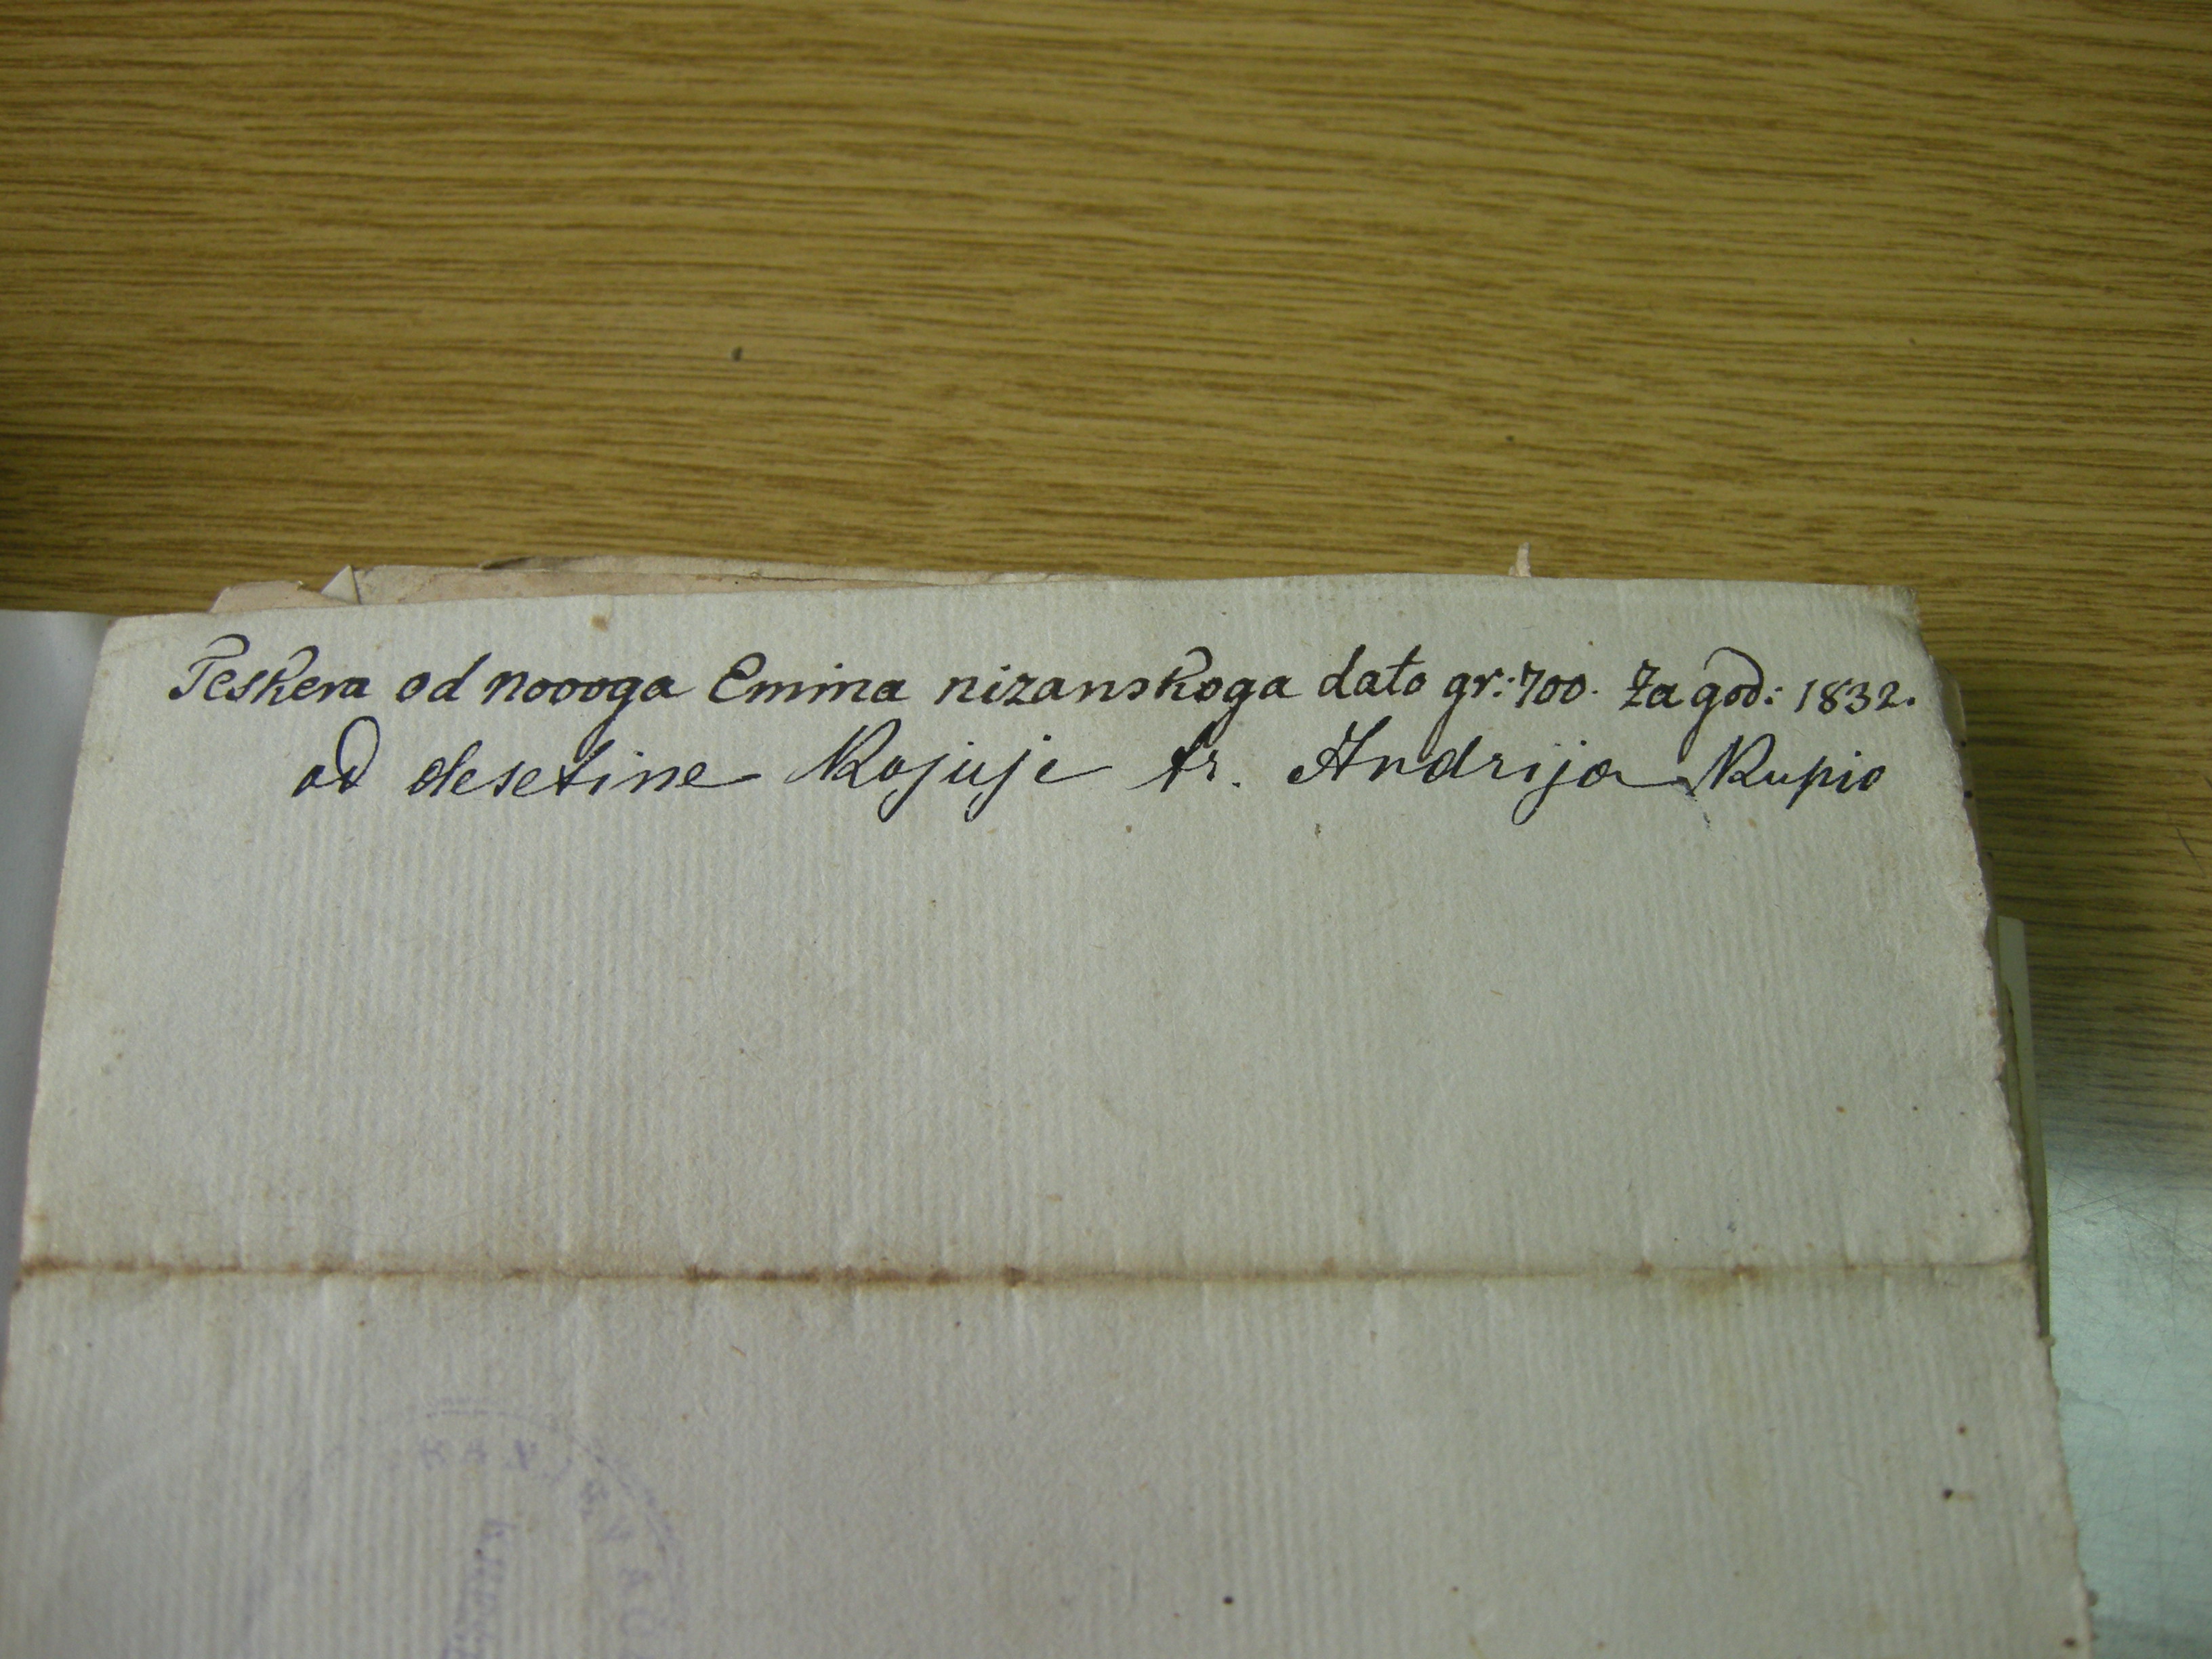 Teskera od novoga Emina nizanskoga dato gr: 700. Za god: 1832.
od desetine Kojuje fr. Andrija Kupio